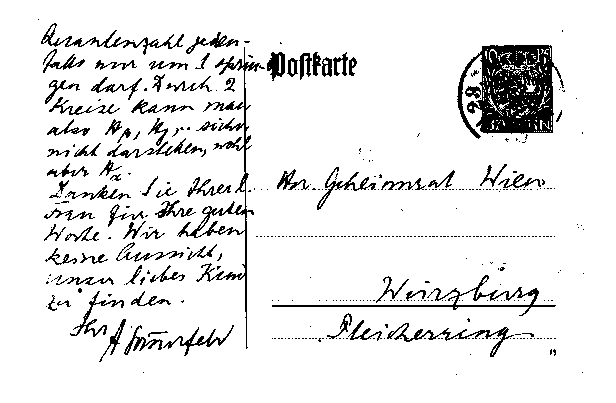 Quantenzahl jeden-
falls nur um 1 sprin-
gen darf. Durch 2
Kreise kann man
also Hβ, Hγ .. sicher
nicht darstellen, wohl
aber Hα.
Danken Sie Ihrer l.
Frau für Ihre guten
Worte. Wir haben
keine Aussicht,
unser liebes Kind
zu finden.
Ihr
A Sommerfeld
Postkarte
Hr Geheimrat Wien
Würzburg
Pleicherring